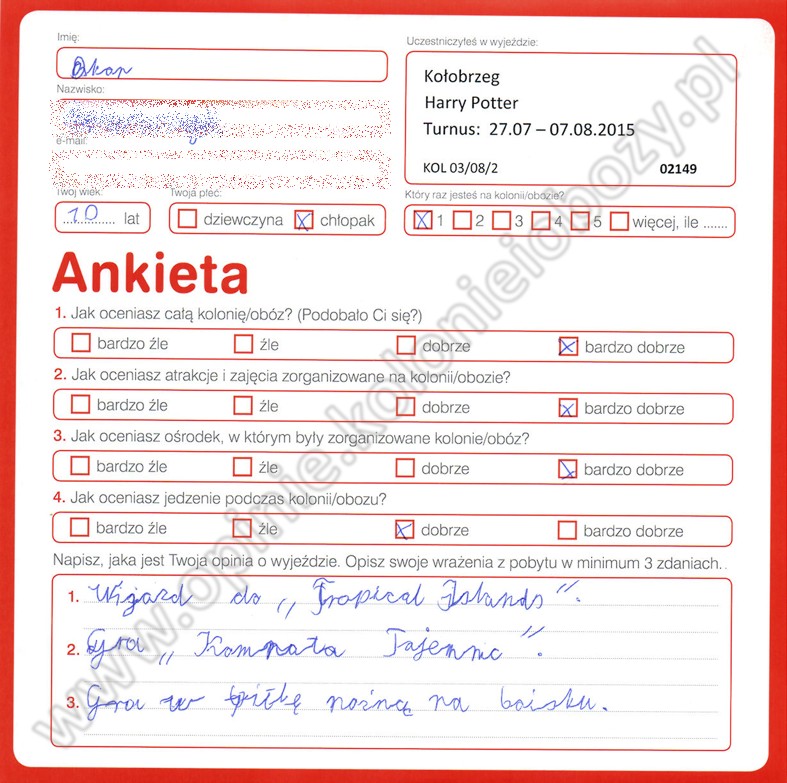 Imię:
Oskar
Nazwisko:
e-mail:
Twój wiek:
10 lat
Twoja płeć:
dziewczyna chłopak
Uczestniczyłeś w wyjeździe:
Kołobrzeg
Harry Potter
Turnus: 27.07 – 07.08.2015
KOL 03/08/2 02149
Który raz jesteś na kolonii/obozie?
1 2 3 4 5 więcej, ile .......
Ankieta
1. Jak oceniasz całą kolonię/obóz? (Podobało Ci się?)
bardzo źle źle dobrze bardzo dobrze
2. Jak oceniasz atrakcje i zajęcia zorganizowane na kolonii/obozie?
bardzo źle źle dobrze bardzo dobrze
3. Jak oceniasz ośrodek, w którym były zorganizowane kolonie/obóz?
bardzo źle źle dobrze bardzo dobrze
4. Jak oceniasz jedzenie podczas kolonii/obozu?
bardzo źle źle dobrze bardzo dobrze
Napisz, jaka jest Twoja opinia o wyjeździe. Opisz swoje wrażenia z pobytu w minimum 3 zdaniach.
1. Wyjazd do „Tropical Islands”.
2. Gra „Komnata Tajemnic”.
3. Gra w piłkę nożną na boisku.
www.opinie.kolonieiobozy.pl